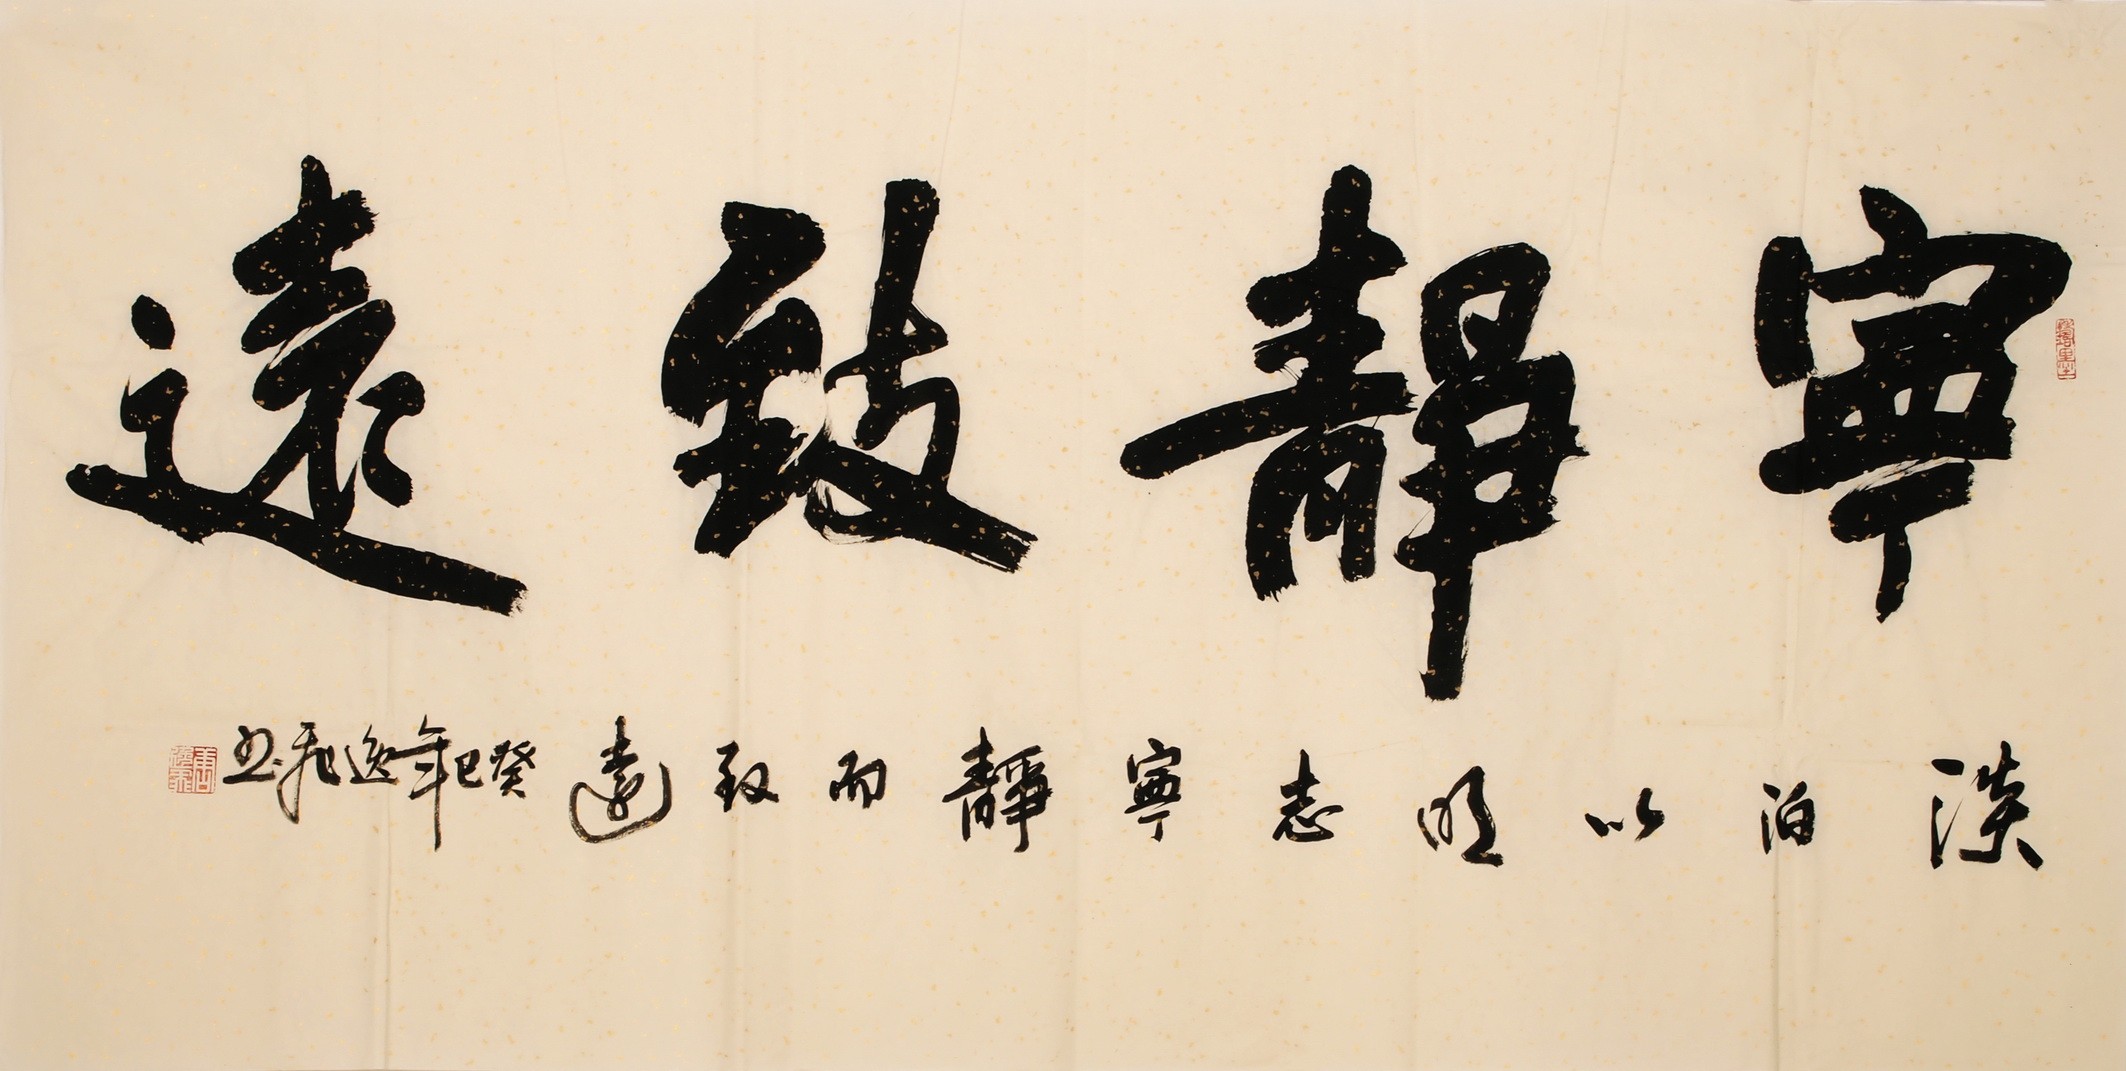 寧靜致遠
淡泊以明志寧靜而致遠癸巳年逸飛書